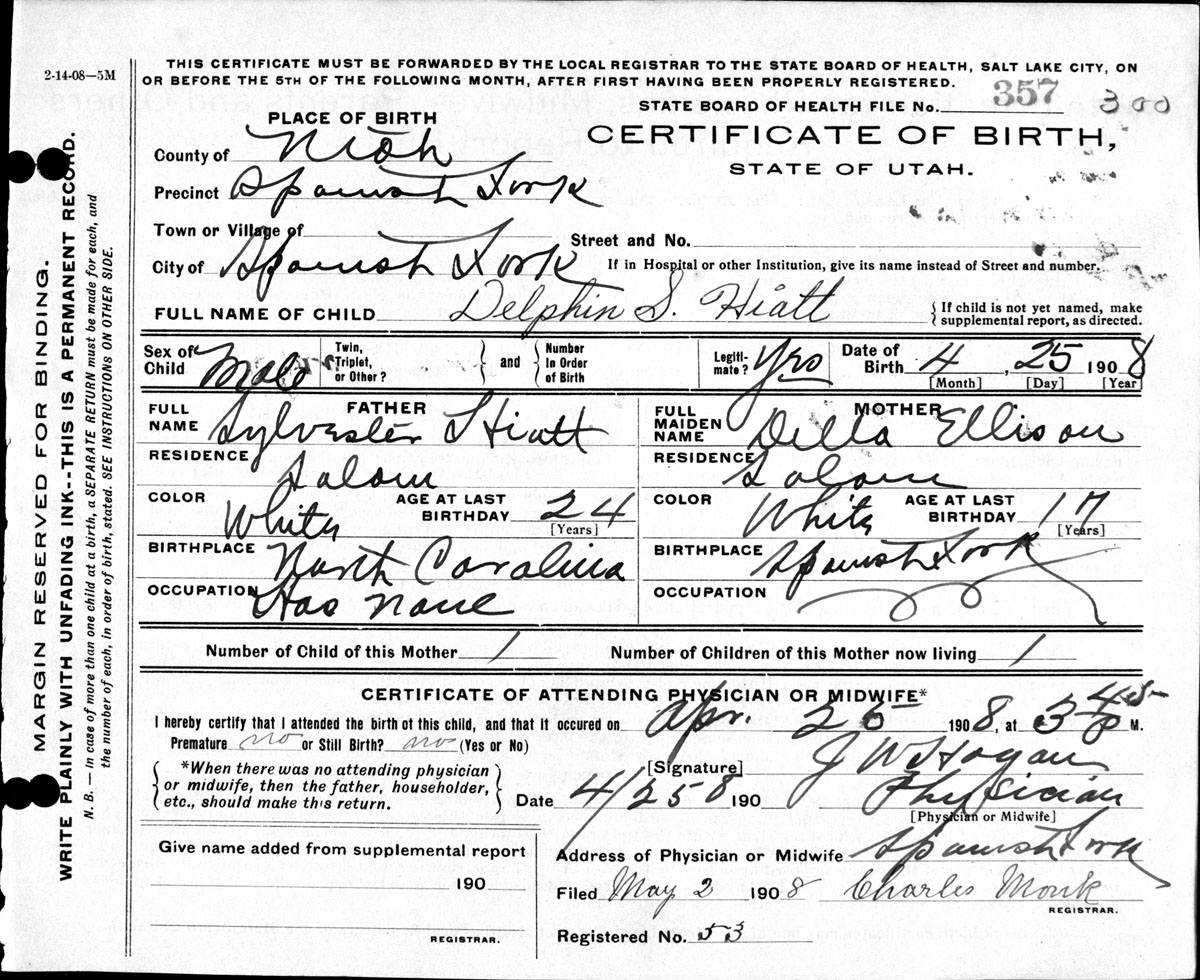 2-14-08—5M
THIS CERTIFICATE MUST BE FORWARDED BY THE LOCAL REGISTRAR TO THE STATE BOARD OF HEALTH, SALT LAKE CITY, ON
OR BEFORE THE 5TH OF THE FOLLOWING MONTH, AFTER FIRST HAVING BEEN PROPERLY REGISTERED.
STATE BOARD OF HEALTH FILE No. 357 300
PLACE OF BIRTH
CERTIFICATE OF BIRTH,
STATE OF UTAH.
County of
Precinct Spanish Fork
Town or Village of
Street and No.
City of Spanish Fork
If in Hospital or other Institution, give its name instead of Street and number.
FULL NAME OF CHILD Delphin S. Hiatt
{If child is not yet named, make
supplemental report, as directed.
Sex of Child Male
Twin, Triplet, or Other? } and { Number In Order of Birth
Legiti-mate? Yes
Date of Birth 4, 25 1908
[Month] [Day] [Year
FATHER
FULL NAME Sylvester Hiatt
RESIDENCE Salem
COLOR White
AGE AT LAST BIRTHDAY 24
[Years]
BIRTHPLACE North Carolina
OCCUPATION Has None
MOTHER
FULL MAIDEN NAME Della Ellison
RESIDENCE Salem
COLOR White
AGE AT LAST BIRTHDAY 17
[Years]
BIRTHPLACE Spanish Fork
OCCUPATION
Number of Child of this Mother 1
Number of Children of this Mother now living 1
CERTIFICATE OF ATTENDING PHYSICIAN OR MIDWIFE*
I hereby certify that I attended the birth of this child, and that it occured on Apr. 1908, at M.
Premature no or Still Birth? no (Yes or No)
{ *When there was no attending physician
or midwife, then the father, householder,
etc., should make this return. }
[Signature] J W Hagan
Date 4/25 8 190
Physician
[Physician or Midwife]
Give name added from supplemental report
190
REGISTRAR.
Address of Physician or Midwife Spanish Fork
Filed May 2 1908 Charles Monk
REGISTRAR.
Registered No. 53
MARGIN RESERVED FOR BINDING.
WRITE PLAINLY WITH UNFADING INK--THIS IS A PERMANENT RECORD.
N. B. — In case of more than one child at a birth, a SEPARATE RETURN must be made for each, and
the number of each, in order of birth, stated. SEE INSTRUCTIONS ON OTHER SIDE.